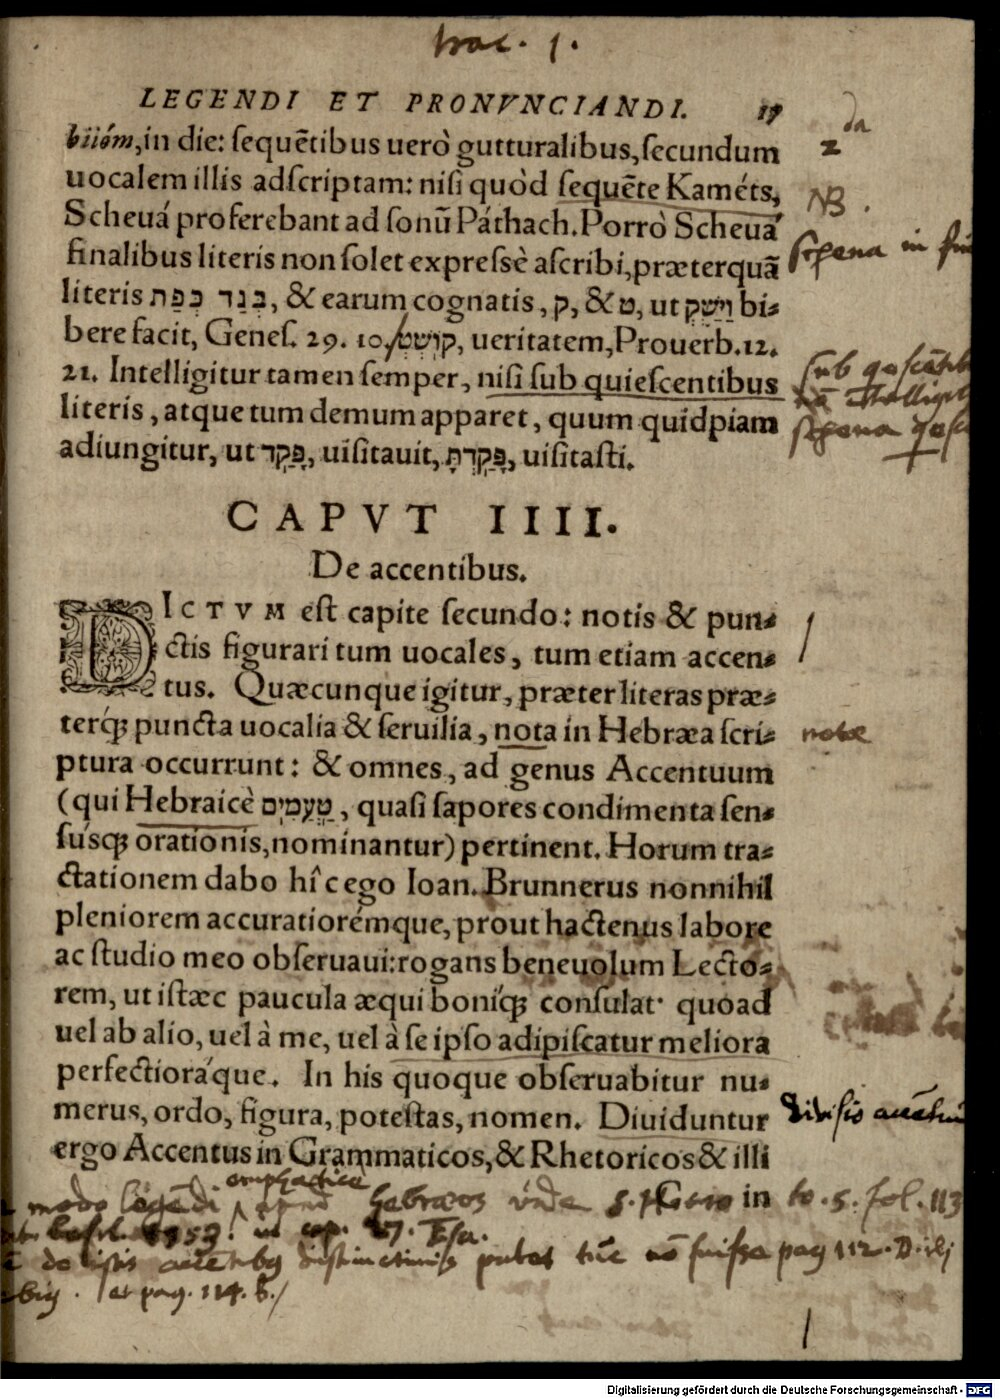 trac. 1.
LEGENDI ET PRONVNCIANDI. 17
biióm, in die: ſequẽtibus uerò gutturalibus, ſecundum
2 da
uocalem illis adſcriptam: niſi quòd ſequẽte Kaméts,
NB.
Scheuá proferebant ad ſonũ Páthach. Porrò Scheuá
finalibus literis non ſolet expreſsè aſcribi, præterquã
in
literis בְּגַד כְּפַת, & earum cognatis, ק, & ט, ut וַיַּשְׁקְ bi⸗
bere facit, Geneſ. 29. 10. קוֹשְׁטְ, ueritatem, Prouerb. 12.
21. Intelligitur tamen ſemper, niſi ſub quieſcentibus
sub
literis, atque tum demum apparet, quum quidpiam
adiungitur, ut פָּקַד, uiſitauit, פָּקַדְתָּ, uiſitaſti.
CAPVT IIII.
De accentibus.
DICTVM eſt capite ſecundo: notis & pun⸗
ctis figurari tum uocales, tum etiam accen⸗
tus. Quæcunque igitur, præter literas præ⸗
terq́ꝫ puncta uocalia & ſeruilia, nota in Hebræa ſcri⸗
notæ
ptura occurrunt: & omnes, ad genus Accentuum
(qui Hebraicè טְעָמִים, quaſi ſapores condimenta ſen⸗
ſúsqꝫ orationis, nominantur) pertinent. Horum tra⸗
ctationem dabo hîc ego Ioan. Brunnerus nonnihil
pleniorem accuratiorémque, prout hactenus labore
ac ſtudio meo obſeruaui: rogans beneuolum Lecto⸗
rem, ut iſtæc paucula æqui boniq́ꝫ conſulat quoad
uel ab alio, uel à me, uel à ſe ipſo adipiſcatur meliora
perfectioráque. In his quoque obſeruabitur nu⸗
merus, ordo, figura, poteſtas, nomen. Diuiduntur
diviſio
ergo Accentus in Grammaticos, & Rhetoricos & illi
C in
modo legẽdi emphatice apud hebræos to. 5. fol. 113
in cap. 27. Esa.
de istis distinctiuis putat tũc nõ fuiſſe pag 112. D.
et pag. 114. b.
Digitalisierung gefördert durch die Deutsche Forschungsgemeinschaft - DFG